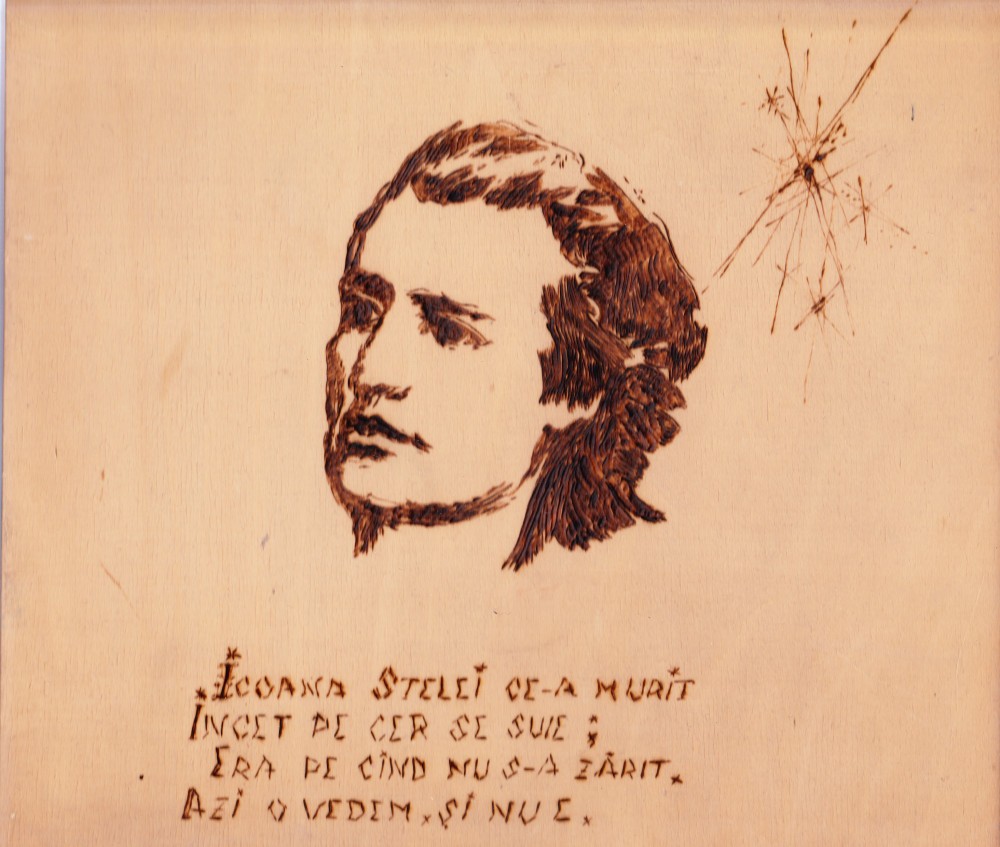 ICOANA STELEI CE-A MURIT
ÎNCET PE CER SE SUIE;
ERA PE CÎND NU S-A ZĂRIT,
AZI O VEDEM, ȘI NU E.